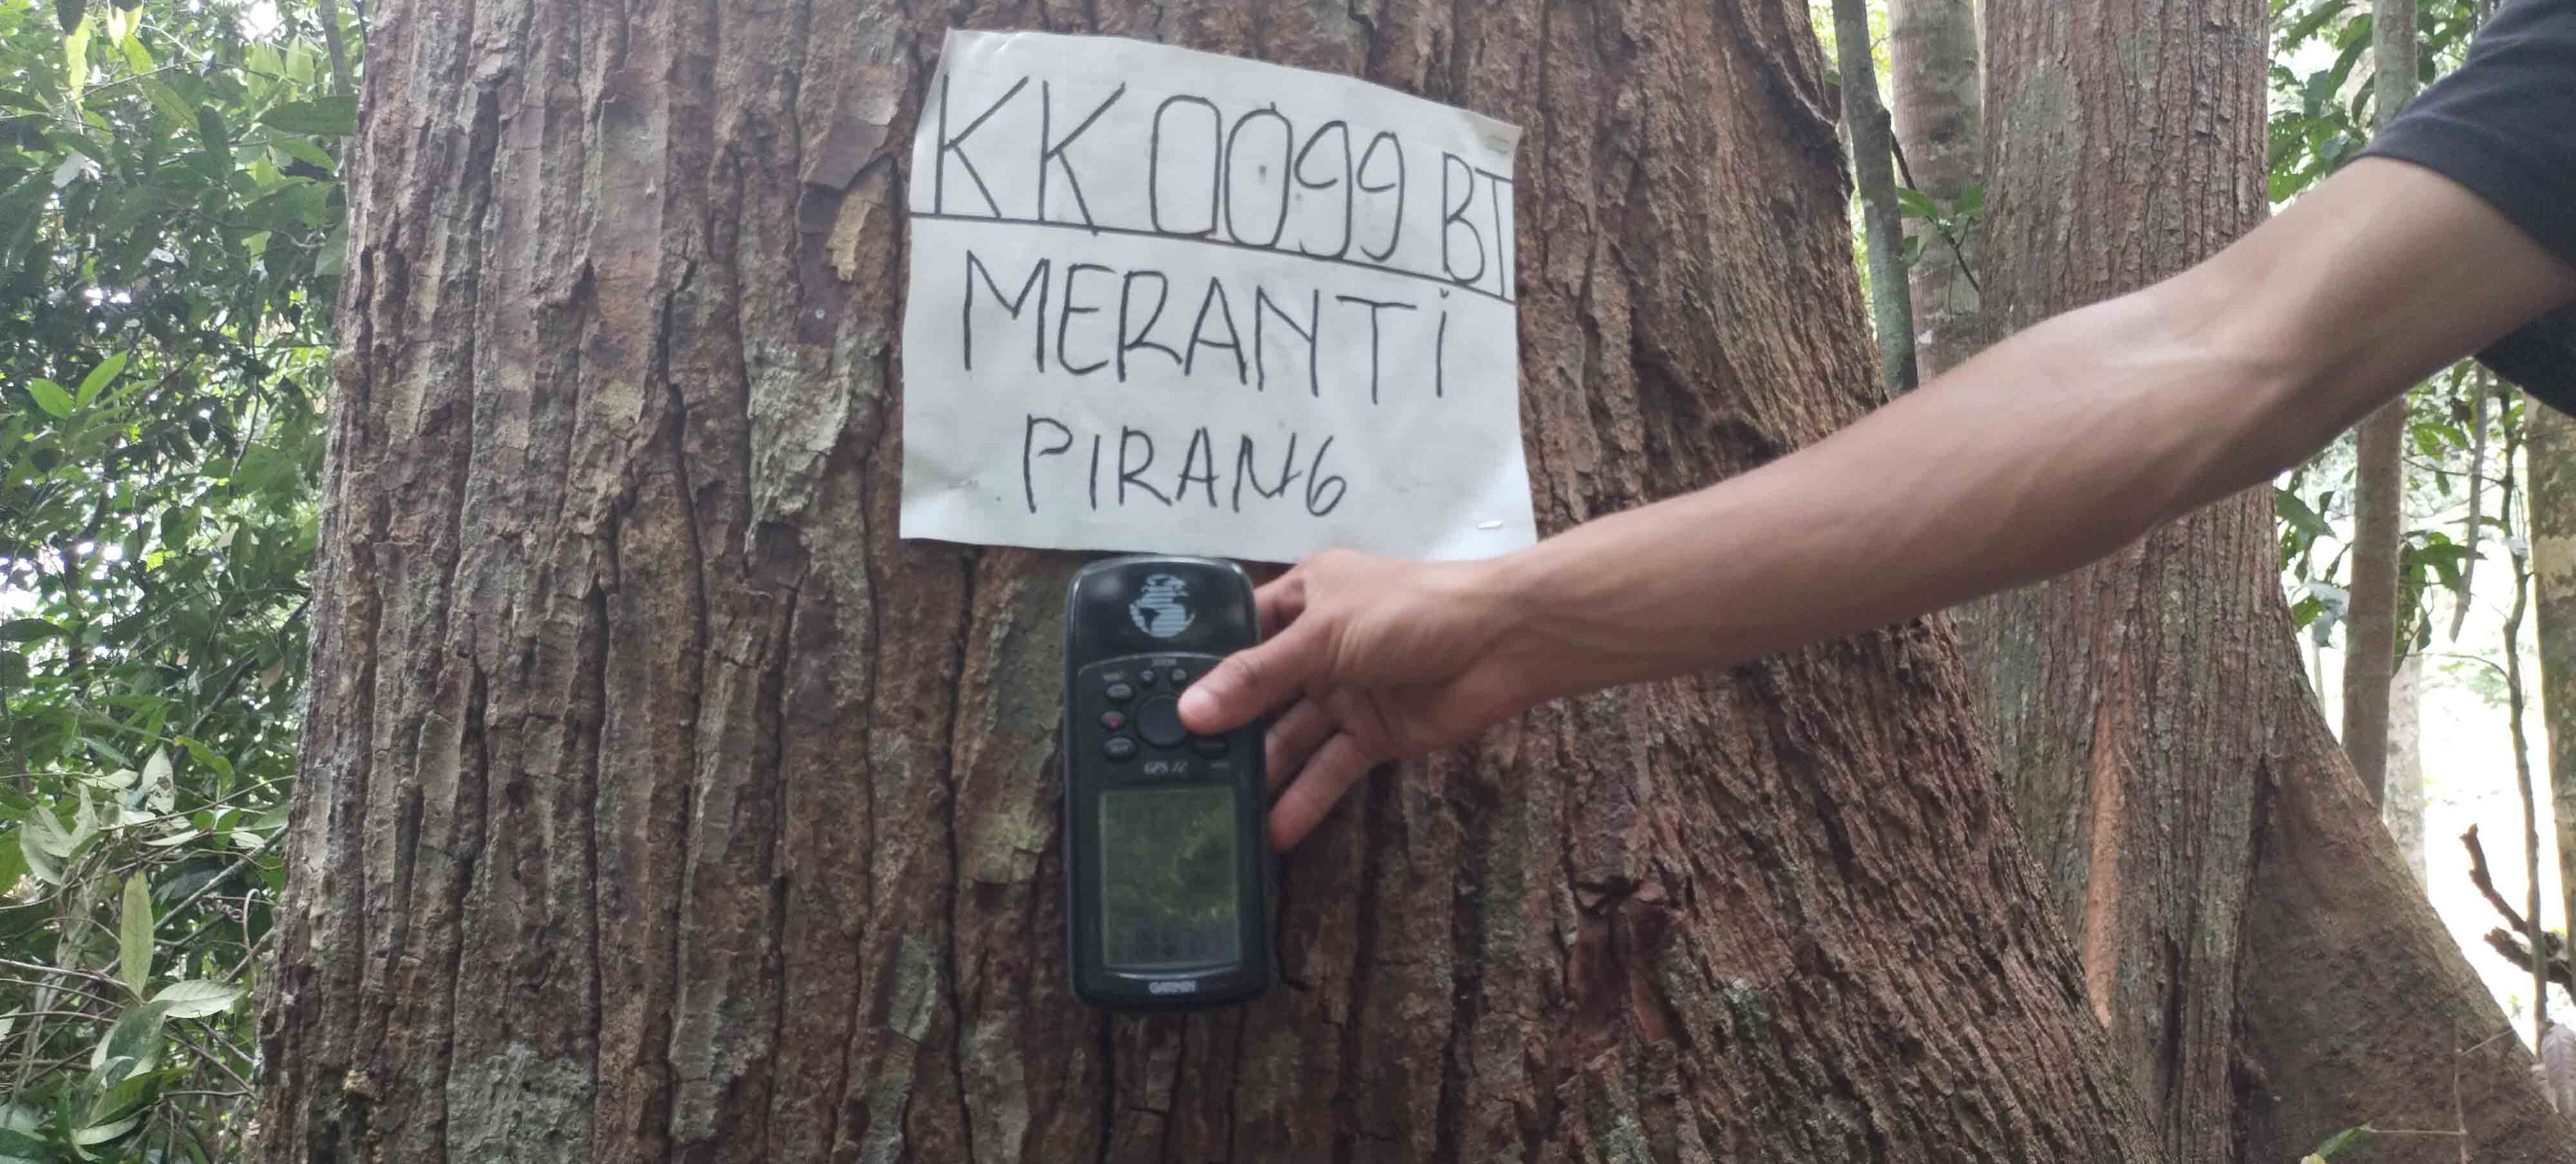 KK0099 BT
MERANTi
PIRANG
GPS 72
GARMIN